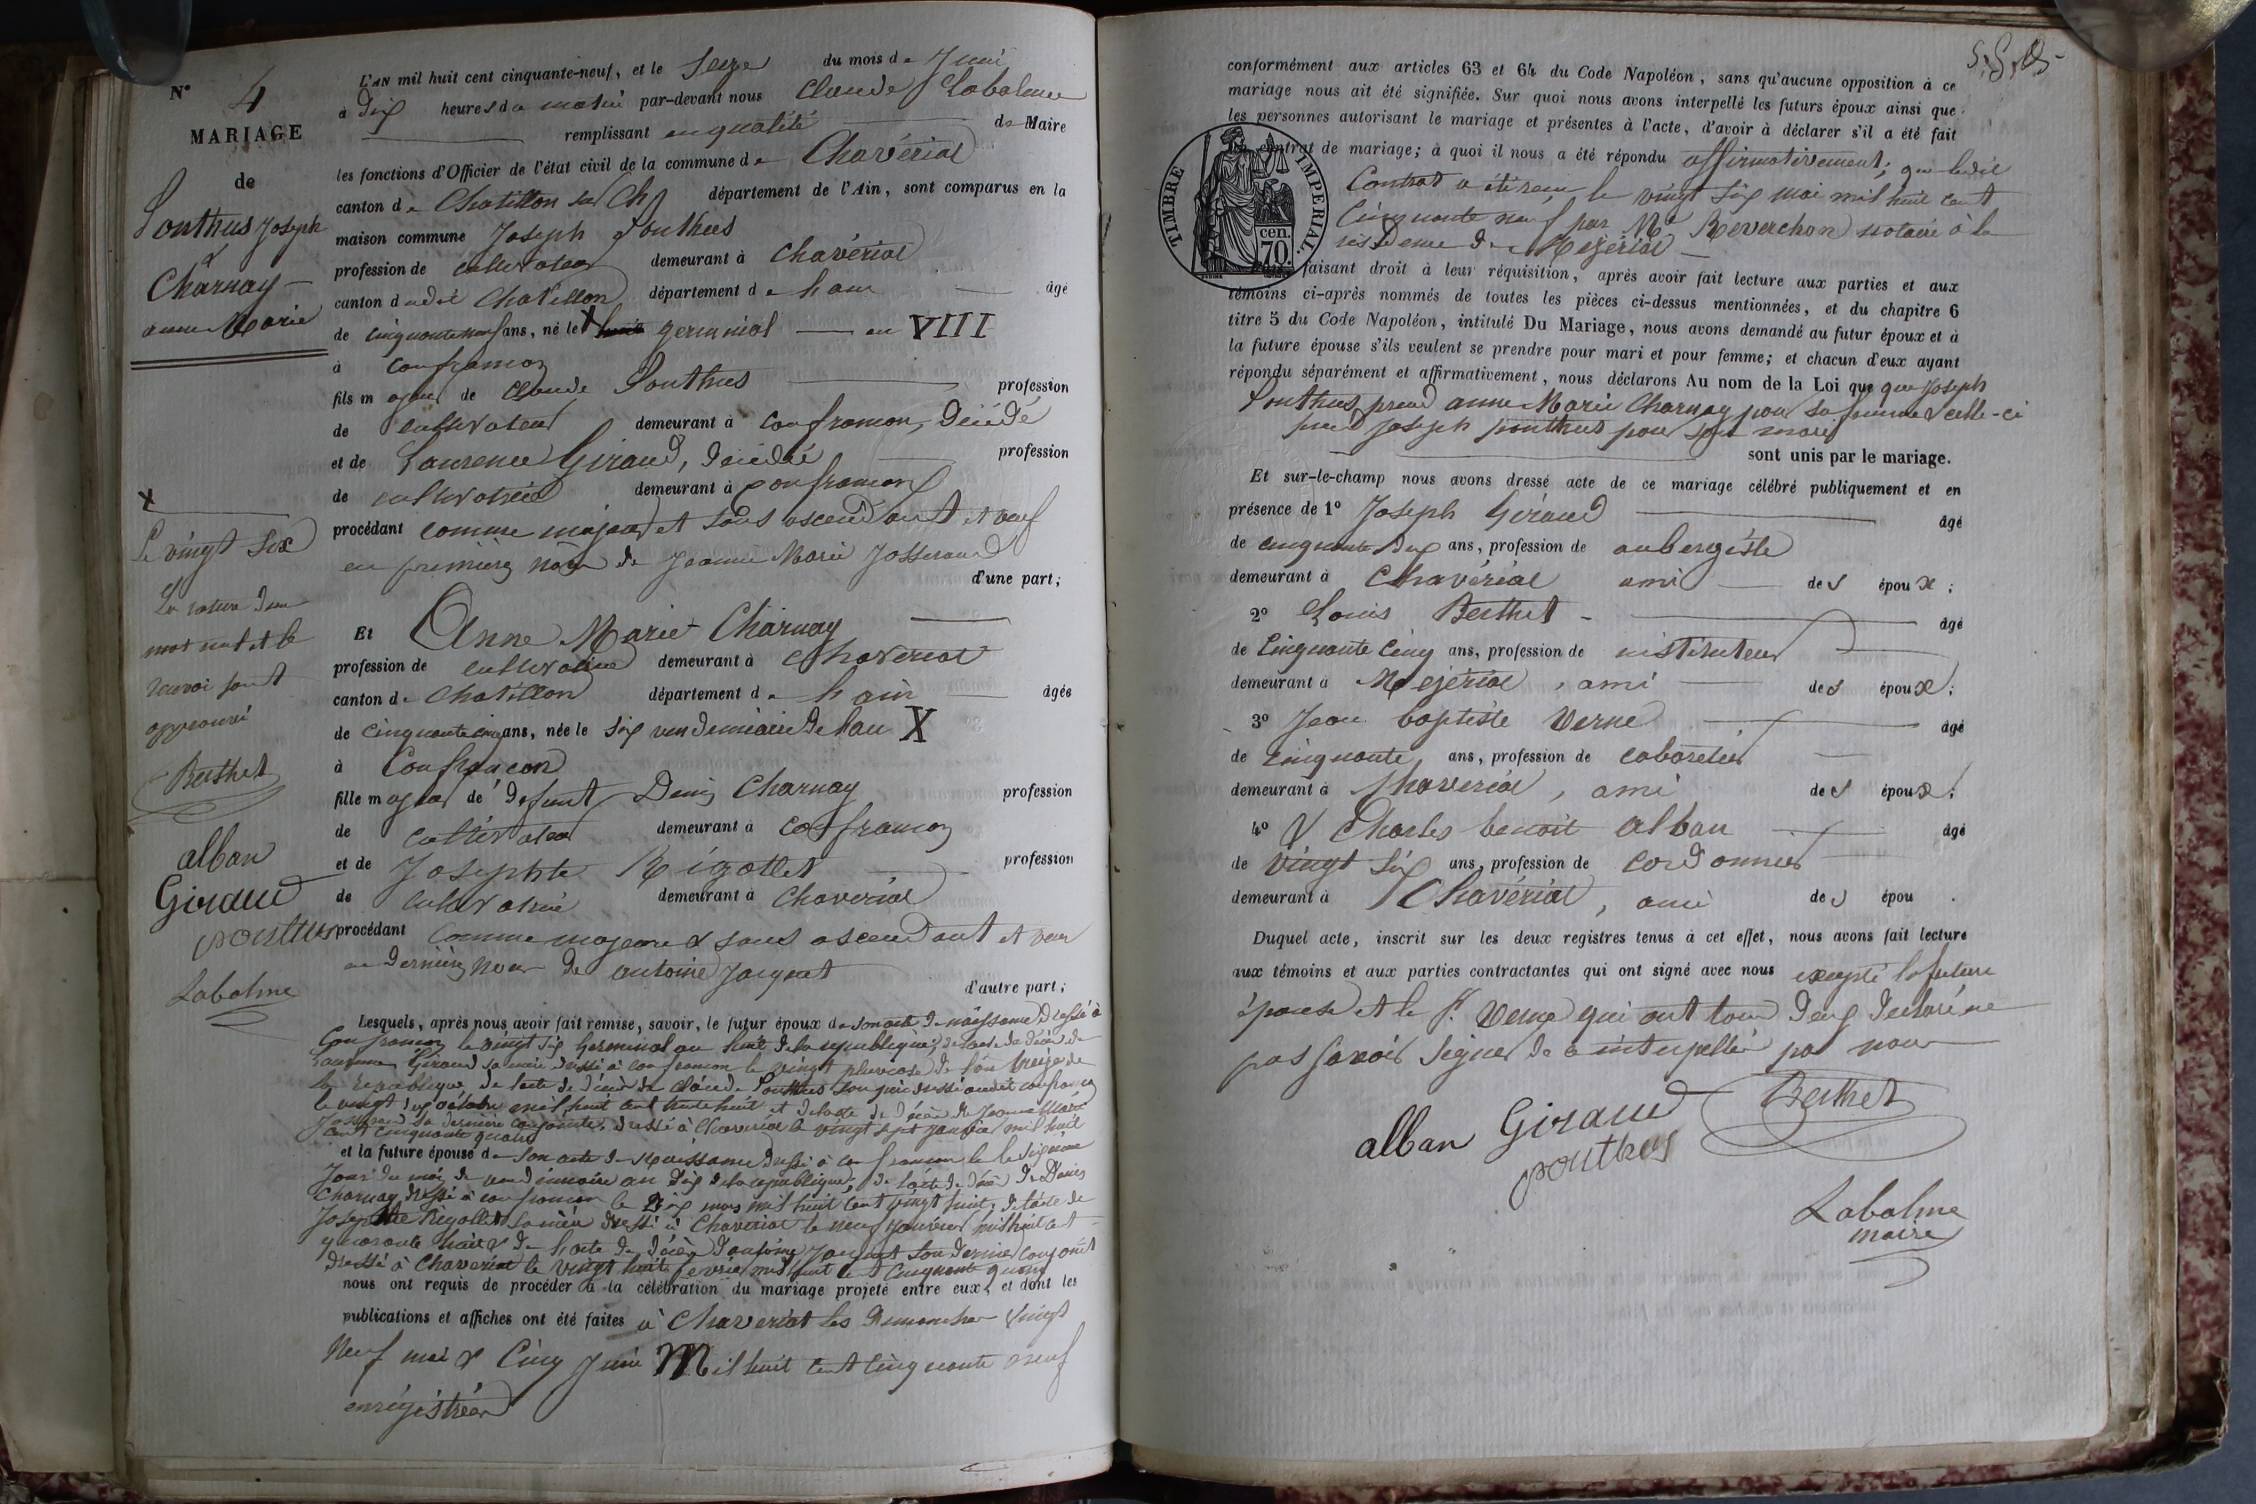 N° 4
MARIAGE
de
Ponthus Joseph
&
Charnay
anne Marie
L'AN mil huit cent cinquante-neuf, et le Seize du mois de Juin
à dix heures du matin par-devant nous Claude Labalme
remplissant en qualité de Maire
les fonctions d'Officier de l'état civil de la commune de Chavériat
canton de Chatillon sur Ch département de l'Ain, sont comparus en la
maison commune Joseph Ponthus
profession de cultivateur demeurant à Chavériat
canton dudit Chatillon département de lain âgé
de cinquante neuf ans, né le X huit germinal an VIII
à confrancon
fils majeur de Claude Ponthus profession
de cultivateur demeurant à confrancon, décédé
et de Laurence Giraud, décédée profession
de cultivatrice demeurant à confrancon
procédant comme majeur et sans ascendant et veuf
en premières noces de Jeanne Marie Josserand
d'une part;
X
Le vingt six
La rature d'un
mot nul et le
renvoi sont
approuvé
Berthet
alban
Giraud
ponthus
Labalme
Et Anne Marie Charnay
profession de cultivatrice demeurant à Chaveriat
canton de Chatillon département de lain âgée
de cinquante cinq ans, née le Six vendemiaire de lan X
à Confrancon
fille majeur de défunt Denis Charnay profession
de cultivateur demeurant à confrancon
et de Josephte Rigollet profession
de cultivatrice demeurant à Chaveriat
procédant comme majeure & sans ascendant et veuve
en dernières noces de antoine Jacquet
d'autre part;
Lesquels, après nous avoir fait remise, savoir, le futur époux de son acte de naissance dressé à
Confrancon le vingt six Germinal an huit de la republique; de lacte de décès de
Laurence Giraud sa mère dressé à confrancon le vingt pluviose de l'an treize de
la republique, de lacte de décès de Claude Ponthus son père dressé audit confrancon
le vingt octobre mil huit cent trente huit et de lacte de décès de Jeanne Marie
Josserand sa dernière conjointe, dressé à Chaveriat le vingt sept janvier mil huit
cent cinquante quatre
et la future épouse de son acte de naissance dressé à confrancon le
jour du mois de vendémiaire an dix de la republique; de lacte de décès de Denis
Charnay dressé à confrancon le dix mars mil huit cent vingt huit, de lacte de
Josephte Rigollet sa mère dressé à Chaveriat le neuf janvier mil huit cent
quarante huit & de lacte de décès d'antoine Jacquet son dernier conjoint
dressé à Chaveriat le vingt huit février mil huit cent cinquante
nous ont requis de procéder à la célébration du mariage projeté entre eux, et dont les
publications et affiches ont été faites à Chaveriat les dimanches vingt
Neuf mai & Cinq Juin Mil huit cent cinquante neuf
enrégistrées
conformément aux articles 63 et 64 du Code Napoléon, sans qu'aucune opposition à ce
mariage nous ait été signifiée. Sur quoi nous avons interpellé les futurs époux ainsi que
les personnes autorisant le mariage et présentes à l'acte, d'avoir à déclarer s'il a été fait
contrat de mariage; à quoi il nous a été répondu affirmativement; que ledit
Contrat a été reçu le vingt Six mai mil huit cent
Cinquante neuf par Me Reverchon notaire à la
résidence de Mezeriat
TIMBRE IMPERIAL.
cen.
70.
faisant droit à leur réquisition, après avoir fait lecture aux parties et aux
témoins ci-après nommés de toutes les pièces ci-dessus mentionnées, et du chapitre 6
titre 5 du Code Napoléon, intitulé Du Mariage, nous avons demandé au futur époux et à
la future épouse s'ils veulent se prendre pour mari et pour femme; et chacun d'eux ayant
répondu séparément et affirmativement, nous déclarons Au nom de la Loi que que Joseph
Ponthus prend anne Marie Charnay pour sa femme & celle-ci
prend Joseph ponthus pour son mari
sont unis par le mariage.
Et sur-le-champ nous avons dressé acte de ce mariage célébré publiquement et en
présence de 1° Joseph Giraud âgé
de cinquante deux ans, profession de aubergiste
demeurant à Chavériat ami des époux;
2° Louis Berthet âgé
de Cinquante Cinq ans, profession de instituteur
demeurant à Mezériat, ami des époux;
3° Jean baptiste Verne âgé
de Cinquante ans, profession de cabaretier
demeurant à Chaveriat, ami des époux;
4° & Charles benoit alban âgé
de vingt Six ans, profession de cordonnier
demeurant à Chavériat, ami des épou .
Duquel acte, inscrit sur les deux registres tenus à cet effet, nous avons fait lecture
aux témoins et aux parties contractantes qui ont signé avec nous excepté la future
épouse et le Sr. Verne qui ont tous deux déclaré ne
pas savoir signer de ce interpellé par nous
alban Giraud Berthet
ponthus
Labalme
maire